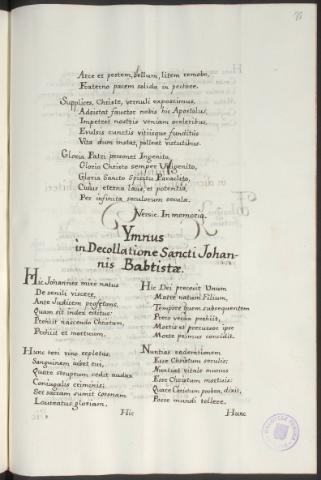 Arce et pestem, bellum, litem remove,
Fraterno pacem solida in pectore.
Supplices, Christe, vernuli exposcimus,
Adsistat fauctor nobis hic Apostolus,
Impetret nostris veniam sceleribus,
Evulsis cunctis vitiisque funditus
Vita dum instat, polleat virtutibus.
Gloria Patri personet Ingenito,
Gloria Christo semper Unigenito,
Gloria Sancto Spiritui Paraclito,
Cuius eterna laus, et potentia
Per infinita seculorum secula.
Versic. In memoria.
Ymnus
in Decollatione Sancti Johan-
nis Babtistæ.
Hic Johannes mire natus
De senili viscere,
Ante Judicem profetans,
Quam sit index editus:
Prehiit nascendo Christum,
Prehiit et mortuum.
Hunc teri vino repletus,
Sanguinem iubet rui,
Quare struptum redit audax
Coniugalis criminis;
Set sacram sumit coronam
Laureatus gloriam.
Hic
Hic Dei precessit Unum
Matre natum Filium,
Tempore quem subsequentem
Preco verax prehiit,
Mortis et precursor ipse
Morte primus concidit.
Nuntias redemtionem
Esse Christum seculis;
Nuntiat vitale munus
Esse Christum mortuis:
Quare Christum probem, dixit,
Posse mundi tollere.
Hunc